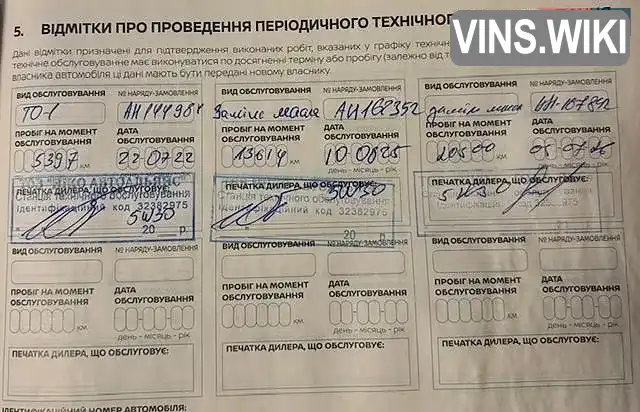 5. ВІДМІТКИ ПРО ПРОВЕДЕННЯ ПЕРІОДИЧНОГО
VINS.WIKI
Дані відмітки призначені для підтвердження виконаних робіт, вказаних у графіку
технічне обслуговування має виконуватися по досягненні терміну або пробігу (залежно від
власника автомобіля ці дані мають бути передані новому власнику.
ВИД ОБСЛУГОВУВАННЯ № НАРЯДУ-ЗАМОВЛЕННЯ ВИД ОБСЛУГОВУВАННЯ № НАРЯДУ-ЗАМОВЛЕННЯ ВИД ОБСЛУГОВУВАННЯ № НАРЯДУ-ЗАМОВЛЕННЯ
ТО-1 Заміна масла АН168352
ПРОБІГ НА МОМЕНТ ОБСЛУГОВУВАННЯ ДАТА ОБСЛУГОВУВАННЯ ПРОБІГ НА МОМЕНТ ОБСЛУГОВУВАННЯ ДАТА ОБСЛУГОВУВАННЯ ПРОБІГ НА МОМЕНТ ОБСЛУГОВУВАННЯ ДАТА ОБСЛУГОВУВАННЯ
5397 км 22 07 22 13614 км 20500 км
день - місяць - рік день - місяць - рік
ПЕЧАТКА ДИЛЕРА, ЩО ОБСЛУГОВУЄ: ПЕЧАТКА ДИЛЕРА, ЩО ОБСЛУГОВУЄ:
Станція технічного обслуговування Станція технічного обслуговування
Ідентифікаційний код 32382975 код 32382975
5W30
20 р. 20 р.
ВИД ОБСЛУГОВУВАННЯ № НАРЯДУ-ЗАМОВЛЕННЯ ВИД ОБСЛУГОВУВАННЯ № НАРЯДУ-ЗАМОВЛЕННЯ ВИД ОБСЛУГОВУВАННЯ № НАРЯДУ-ЗАМОВЛЕННЯ
ПРОБІГ НА МОМЕНТ ОБСЛУГОВУВАННЯ ДАТА ОБСЛУГОВУВАННЯ ПРОБІГ НА МОМЕНТ ОБСЛУГОВУВАННЯ ДАТА ОБСЛУГОВУВАННЯ ПРОБІГ НА МОМЕНТ ОБСЛУГОВУВАННЯ ДАТА ОБСЛУГОВУВАННЯ
км день - місяць - рік км день - місяць - рік км день - місяць - рік
ПЕЧАТКА ДИЛЕРА, ЩО ОБСЛУГОВУЄ: ПЕЧАТКА ДИЛЕРА, ЩО ОБСЛУГОВУЄ: ПЕЧАТКА ДИЛЕРА, ЩО ОБСЛУГОВУЄ:
ІДЕНТИФІКАЦІЙНИЙ НОМЕР АВТОМОБІЛЯ: